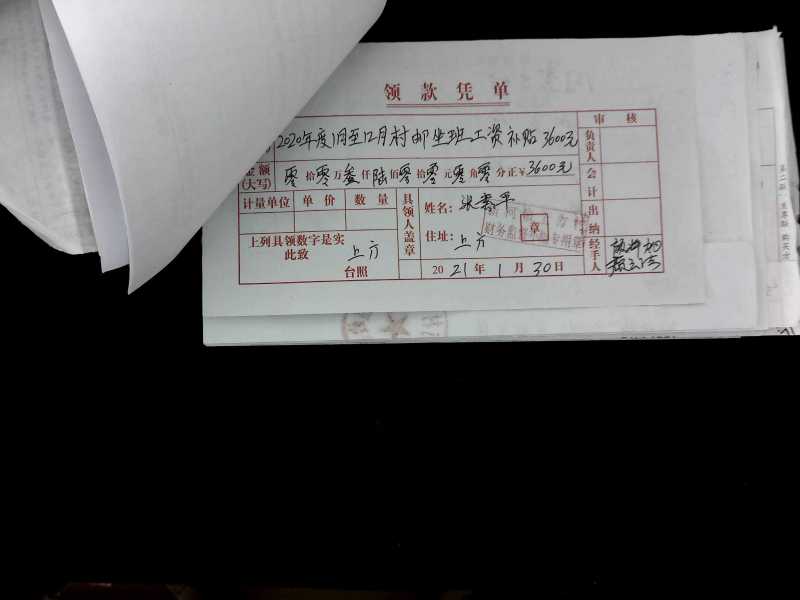 领款凭单
审核
2020年度1月至12月村邮坐班工资补贴3600元
负责人
金额(大写) 零拾零万叁仟陆佰零拾零元零角零分正¥3600元
会计
计量单位 单价 数量
具领人盖章
姓名:
出纳
章
财务监督 专用章
上列具领数字是实
此致
上方
住址: 上方
经手人
台照
2021年1月30日